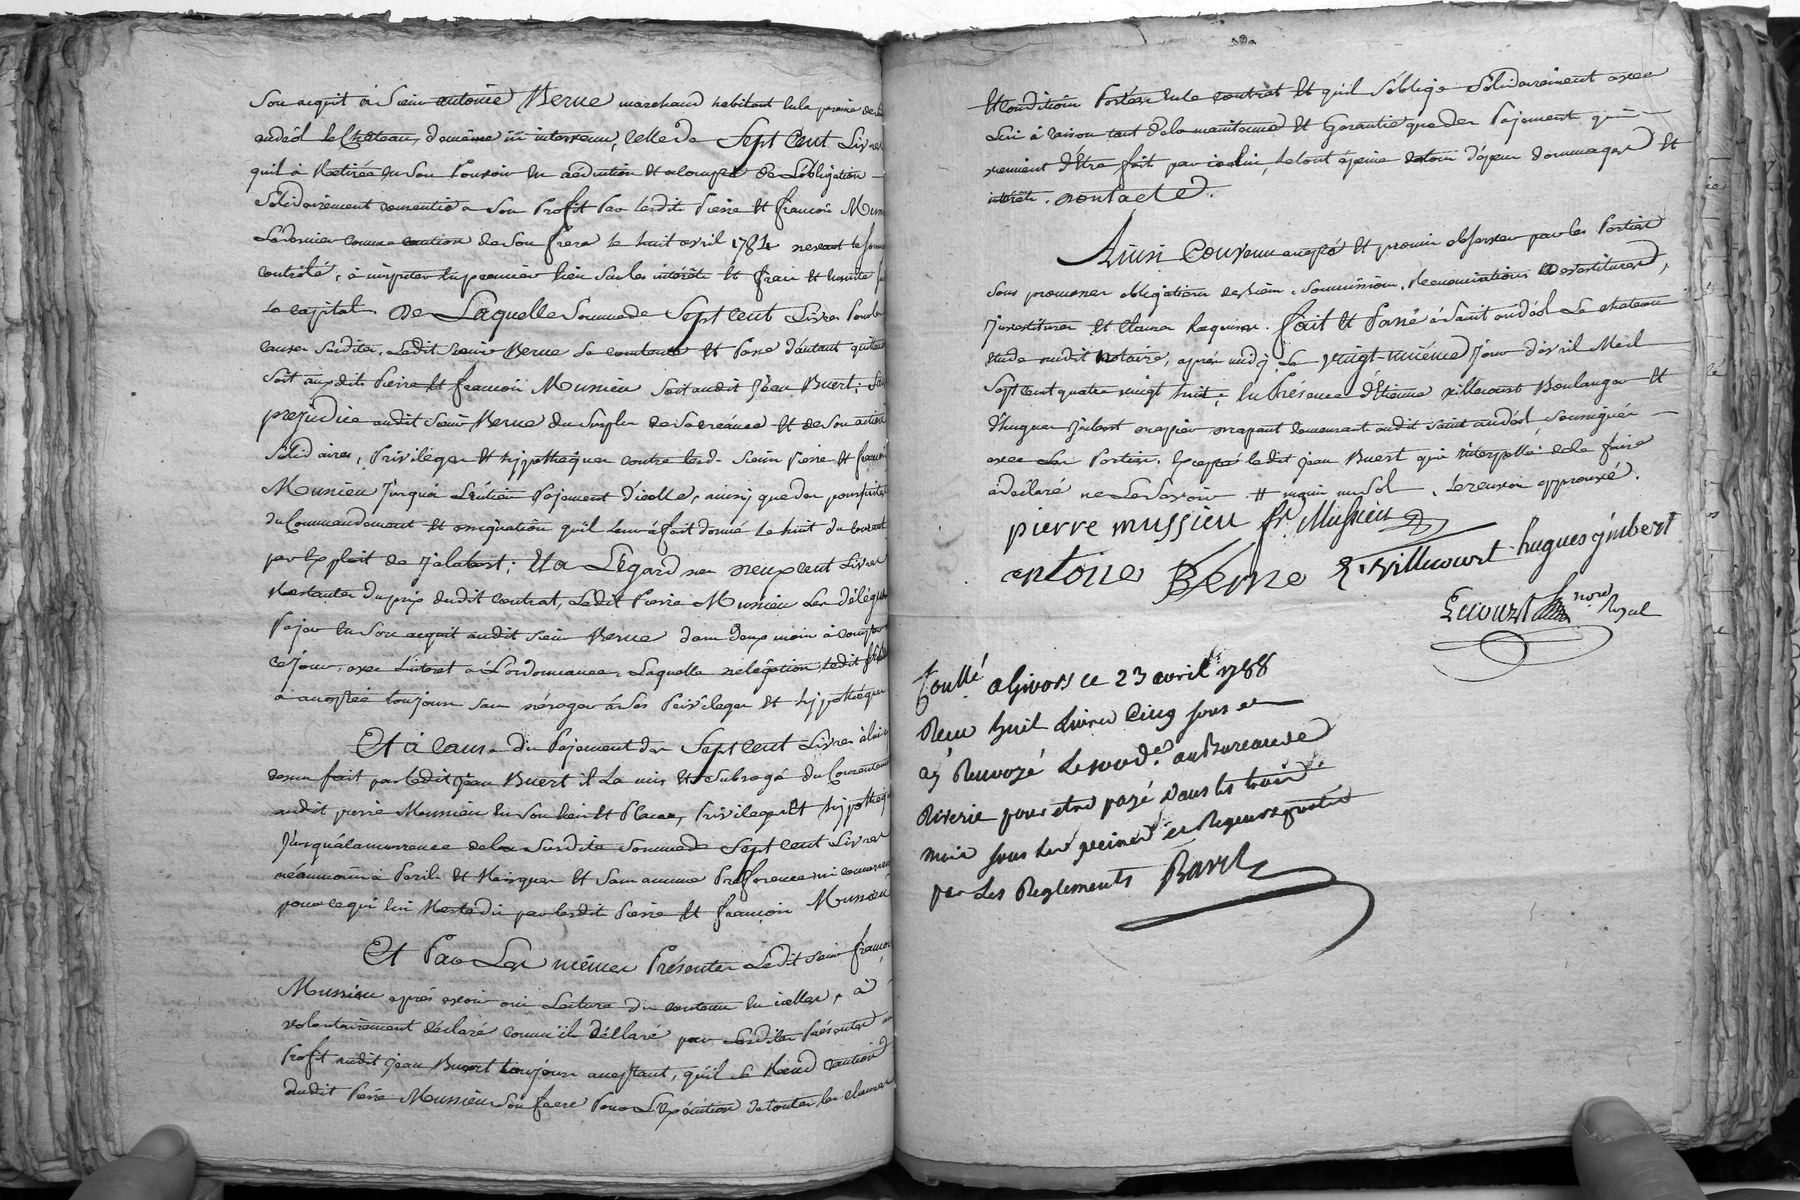 son acquit à sieur antoine Berne marchand habitant en la paroisse de
andéol le Château, demême ici intervenu, celle de Sept Cent Livres
qu'il à Retirée en son Pouvoir en deduction et acompte de L'obligation
Solidairement consentie a son Profit Par lesdits Pierre et françois Mussieu
Ledernier comme caution de son frere le huit avril 1784
controlé, à imputer en premier lieu sur les intérêts et frais et ensuite sur
le capital. De Laquelle Somme de Sept Cent Livres Pour les
causes susdites, Ledit sieur Berne se contente et Passe d'autant quittance
soit auxdits Pierre et françois Mussieu soit audit Jean Buert; sans
prejudice audit sieur Berne du surplus de sa créance et de son action
solidaires, Privilèges et hypothèques contre lesd. sieurs Pierre et françois
Mussieu jusquà L'entier Pajement d'icelle, ainsi que des poursuites
du Commandement et assignation qu'il leur à fait donné le huit du courant
par Exploit de Jalabert; Et a L'égard des neuf cent Livres
Restantes du prix dudit contrat, Ledit Pierre Mussieu Les délégue
Pajer en son acquit audit sieur Berne dans deux mois à compter
ce jour, avec L'intérêt à L'ordonnance, Laquelle délégation ledit
à acceptée toujours sans déroger à ses Privilèges et hypothèques
Et à cause du Pajement des Sept Cent Livres
dessus fait par ledit Jean Buert il La mis et Subrogé du Consentement
audit pierre Mussieu en son lieu et Place, Privileges et hypothèques
Jusquàlaconcurrence de la susdite somme de Sept Cent Livres
néanmoins à Perils et Risques et sans aucune Préférence ni concurrence
pour ce qui lui Reste dû par lesdits Pierre et françois Mussieu
Et Par Les mêmes Présentes Ledit sieur françois
Mussieu après avoir oui Lecture du contenu en icelles, à
volontairement déclaré comm'il déclare par Lesdites Présentes au
Profit dudit Jean Buert toujours acceptant, qu'il se Rend caution
dudit Pierre Mussieu son frere Pour L'Exécution de toutes les clauses
Et Conditions Portées en le contrat Et qu'il s'oblige Solidairement avec
Lui à raison tant de la maintenue et Garantie que des Pajements qui
viennent d'être fait par icelui, le tout à peine de tous dépens dommages et
intérêts.
Ainsi Convenu accepté et promis observer par les Parties
sous promesses obligations de biens, soumissions, Renonciations
et Clauses Requises. fait et Passé à Saint andéol Le chateau
étude dudit notaire, après midy Le vingt-unième Jour d'avril Mil
Sept cent quatre vingt huit; En Présence d'Etienne villecourt Boulanger et
d'hugues Jinbert demeurants audit saint andéol, soussignés
avec Les Parties, Excepté ledit jean Buert qui interpellé de le faire
à déclaré ne Le Savoir # approuvé.
pierre mussieu fs. Mussieu
antoine Berne E. villecourt hugues jinbert
Royal
Conllé a Givors ce 23 avril 1788
Recu huit Livres Cinq sous et
ay Renvoyé Le au Bureau de
Riverie pour etre payé dans les trois
mois sous les peines et Rigueurs portés
par Les Reglements Barel